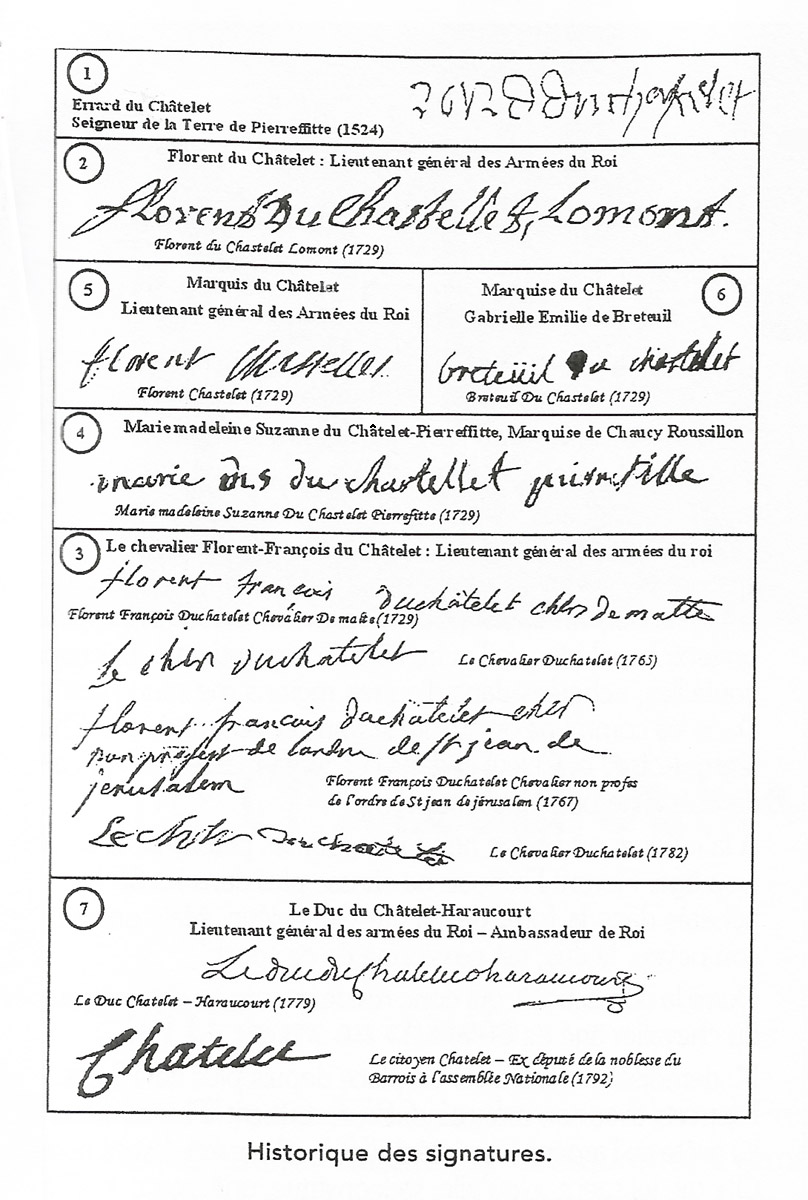 1
Errard du Châtelet
Seigneur de la Terre de Pierreffitte (1524)
2
Florent du Châtelet : Lieutenant général des Armées du Roi
florent Du Chastellet Lomont.
Florent du Chastelet Lomont (1729)
5
Marquis du Châtelet
Lieutenant général des Armées du Roi
florent Chastellet
Florent Chastelet (1729)
6
Marquise du Châtelet
Gabrielle Emilie de Breteuil
breteüil du chastelet
Breteuil Du Chastelet (1729)
4
Marie madeleine Suzanne du Châtelet-Pierreffitte, Marquise de Chaucy Roussillon
marie ms du chastellet
Marie madeleine Suzanne Du Chastelet Pierrefitte (1729)
3
Le chevalier Florent-François du Châtelet : Lieutenant général des armées du roi
florent françois duchâtelet chlr de malte
Florent François Duchatelet Chevalier De malte (1729)
le chlr duchatelet
Le Chevalier Duchatelet (1765)
florent françois duchâtelet cher
non profest de lordre de st jean de
jerusalem
Florent François Duchatelet Chevalier non profes
de l'ordre de St jean de jérusalem (1767)
Le chlr duchatelet
Le Chevalier Duchatelet (1782)
7
Le Duc du Châtelet-Haraucourt
Lieutenant général des armées du Roi – Ambassadeur de Roi
Le duc du Chatelet haraucourt
Le Duc Chatelet – Haraucourt (1779)
Chatelet
Le citoyen Chatelet – Ex député de la noblesse du
Barrois à l'assemblée Nationale (1792)
Historique des signatures.